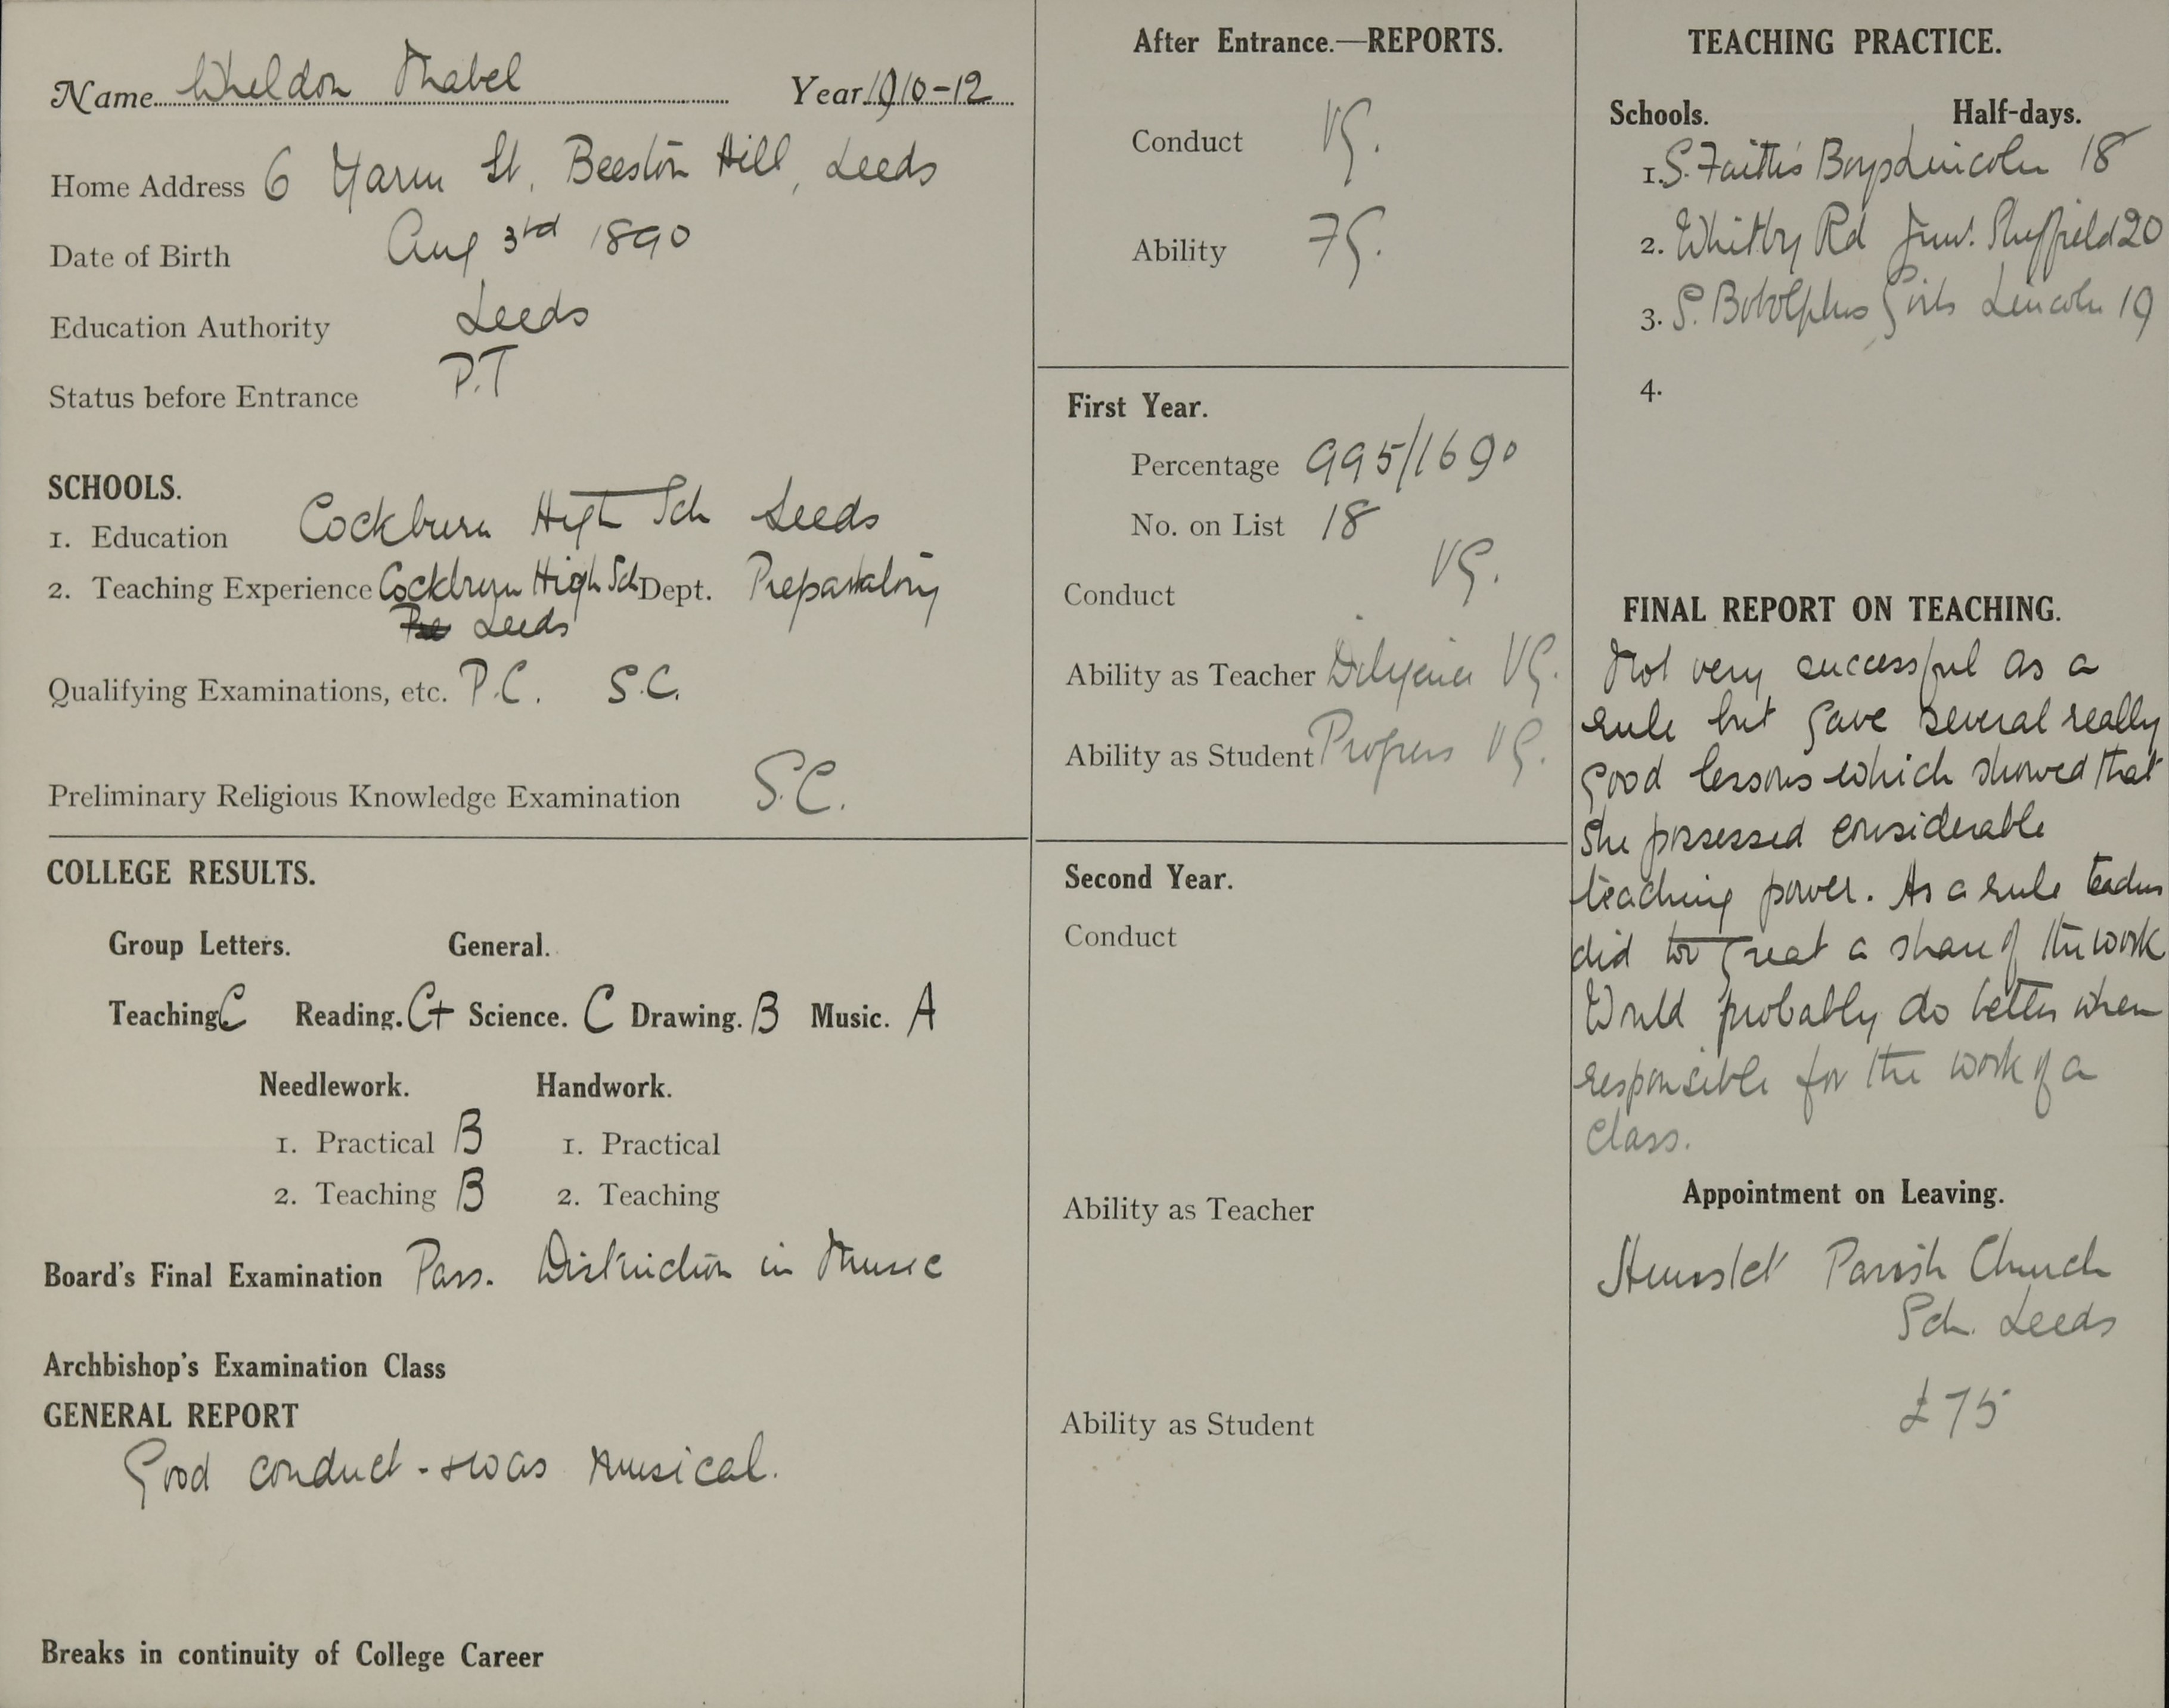 Name Wheldon Mabel Year 1910-12
Home Address 6 Yarm St, Beeston Hill, Leeds
Date of Birth Aug 3rd 1890
Education Authority Leeds
Status before Entrance P.T
SCHOOLS.
1. Education Cockburn High Sch Leeds
2. Teaching Experience Cockburn High Sch Dept. Preparatory
Leeds
Qualifying Examinations, etc. P.C. S.C.
Preliminary Religious Knowledge Examination S.C.
COLLEGE RESULTS.
Group Letters. General.
Teaching C Reading. C+ Science. C Drawing. B Music. A
Needlework. Handwork.
1. Practical B 1. Practical
2. Teaching B 2. Teaching
Board's Final Examination Pass. Distinction in Music
Archbishop's Examination Class
GENERAL REPORT
Good conduct - & was musical.
Breaks in continuity of College Career
After Entrance.—REPORTS.
Conduct VG.
Ability FG.
First Year.
Percentage 995/1690
No. on List 18
Conduct VG.
Ability as Teacher Diligence VG.
Ability as Student Progress VG.
Second Year.
Conduct
Ability as Teacher
Ability as Student
TEACHING PRACTICE.
Schools. Half-days.
1. S. Faith's Boys Lincoln 18
2. Whitby Rd Junr. Sheffield 20
3. S. Botolphs Girls Lincoln 19
4.
FINAL REPORT ON TEACHING.
Not very successful as a
rule but gave several really
good lessons which showed that
she possessed considerable
teaching power. As a rule
did too great a share of the work
Would probably do better when
responsible for the work of a
class.
Appointment on Leaving.
Hunslet Parish Church
Sch. Leeds
£75